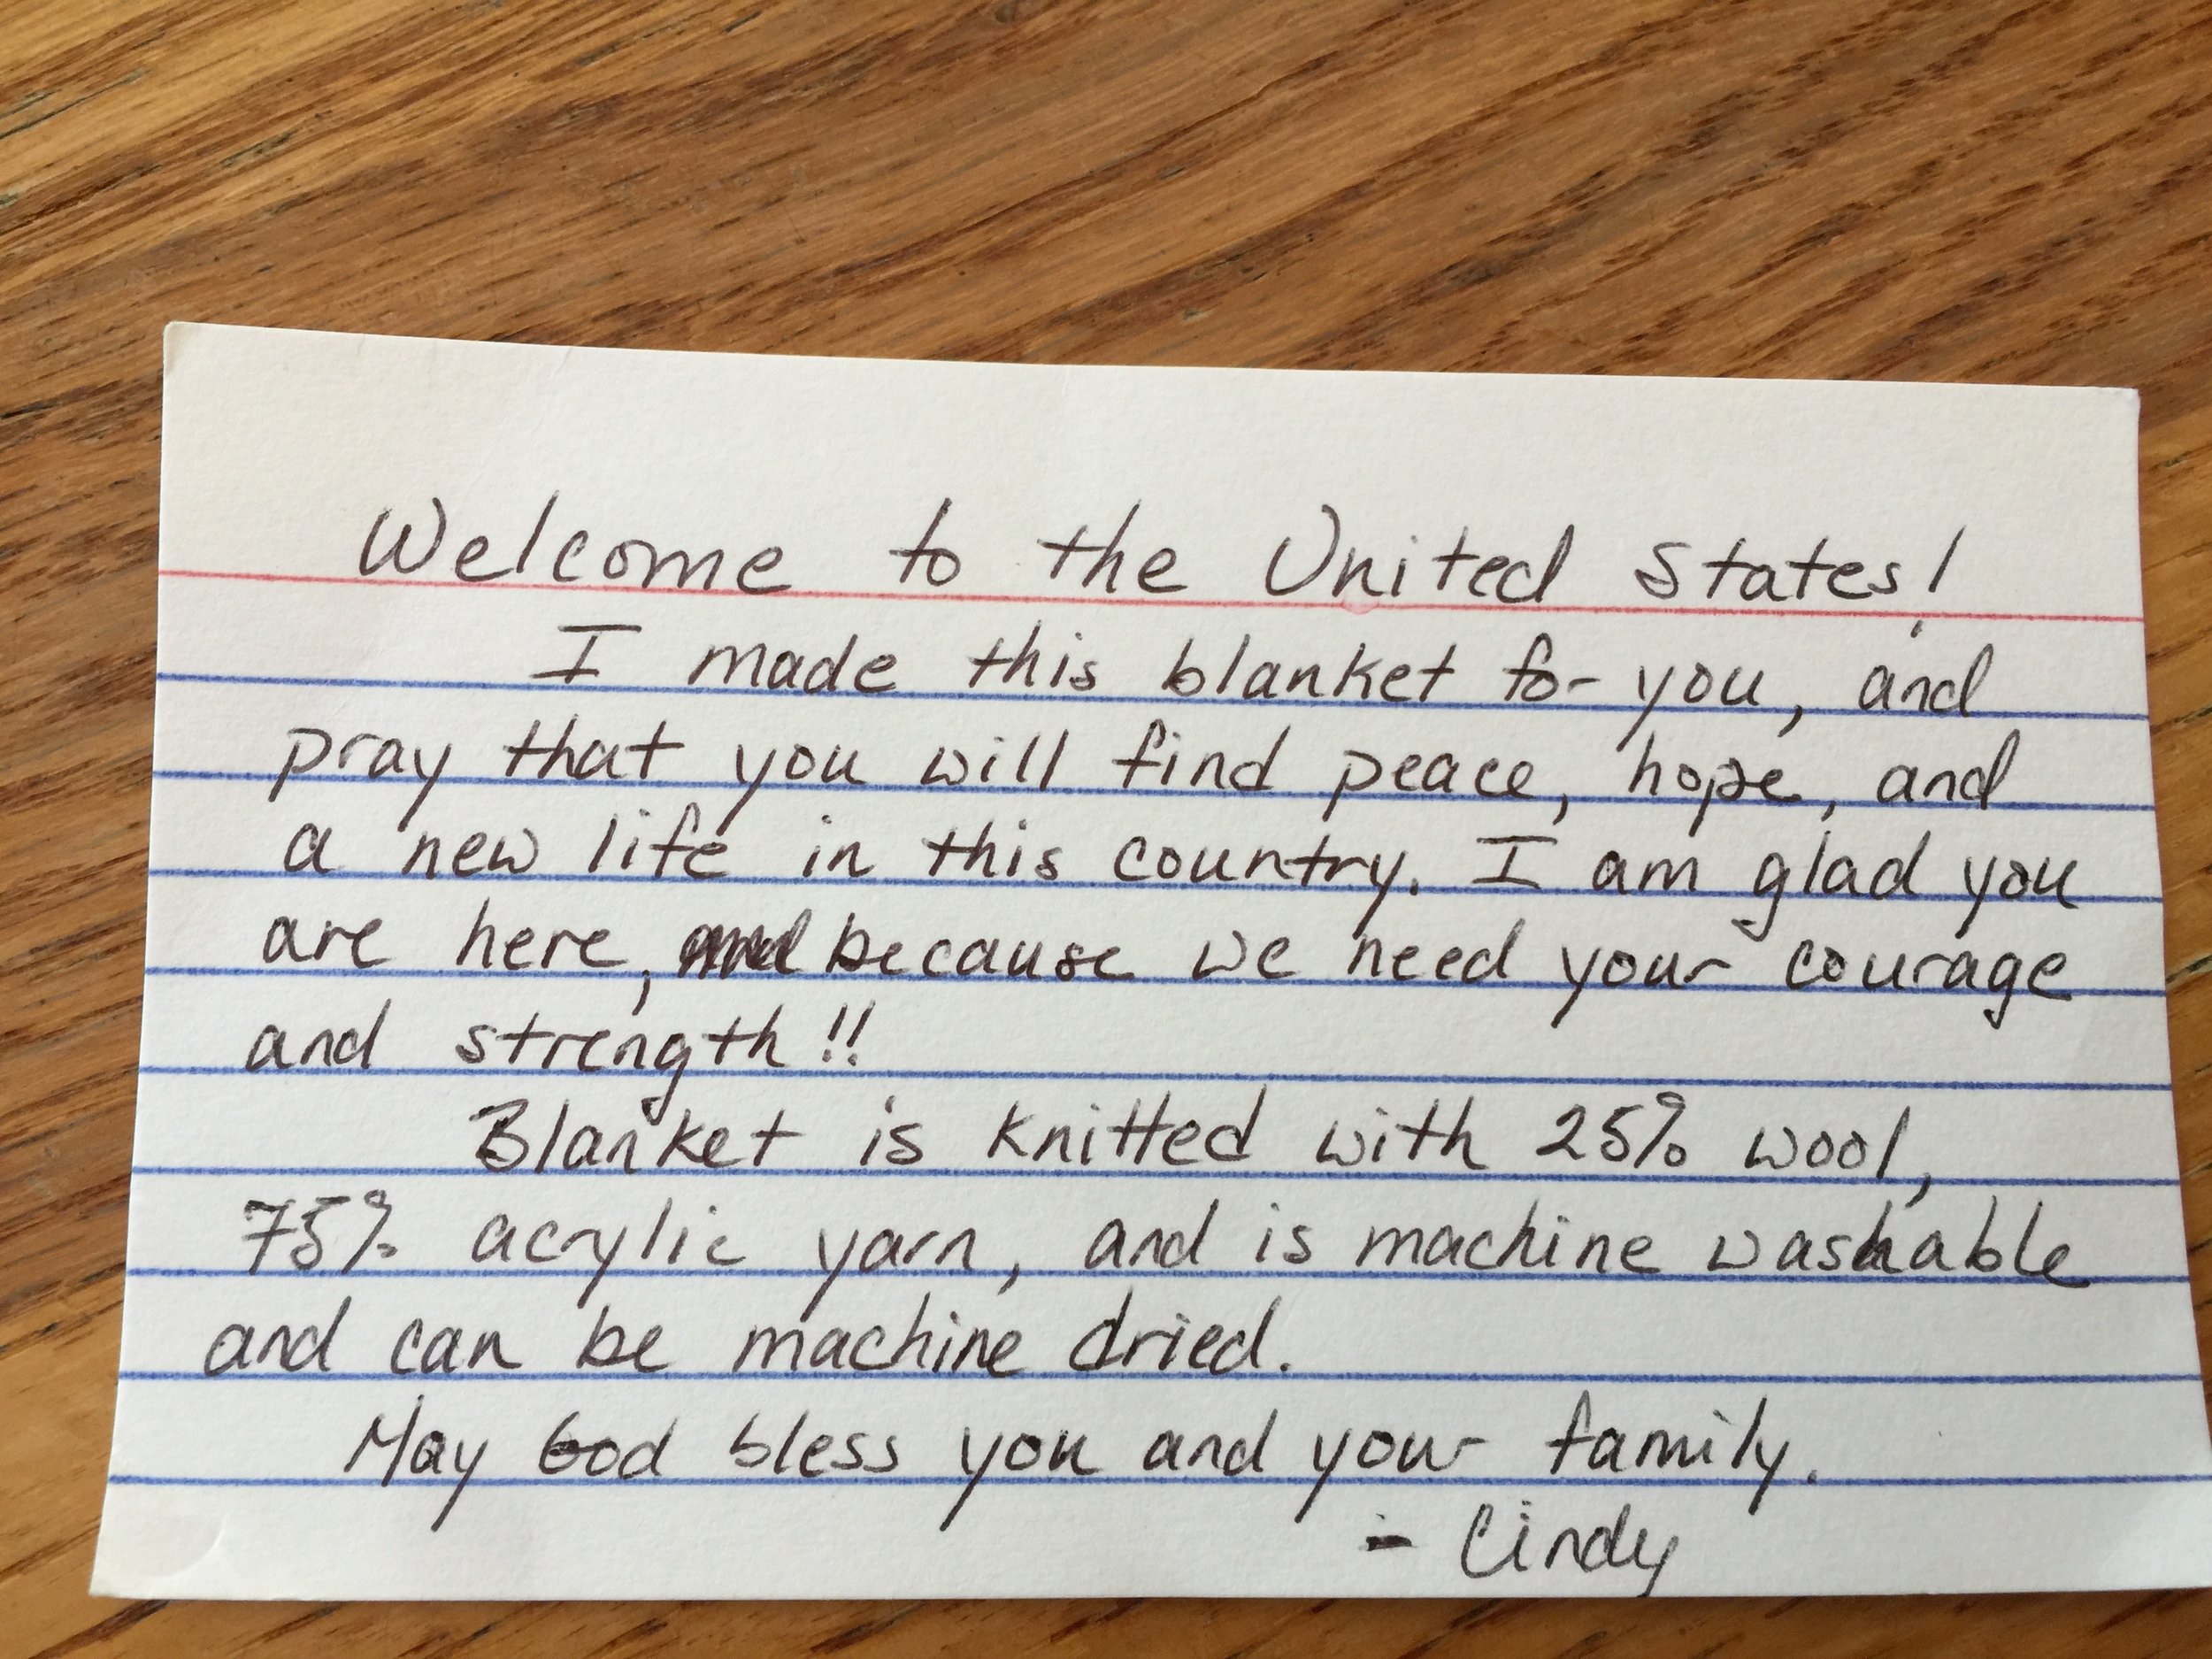 Welcome to the United States!
I made this blanket for you, and
pray that you will find peace, hope, and
a new life in this country. I am glad you
are here, because we need your courage
and strength!!
Blanket is knitted with 25% wool,
75% acrylic yarn, and is machine washable
and can be machine dried.
May God bless you and your family.
- Cindy